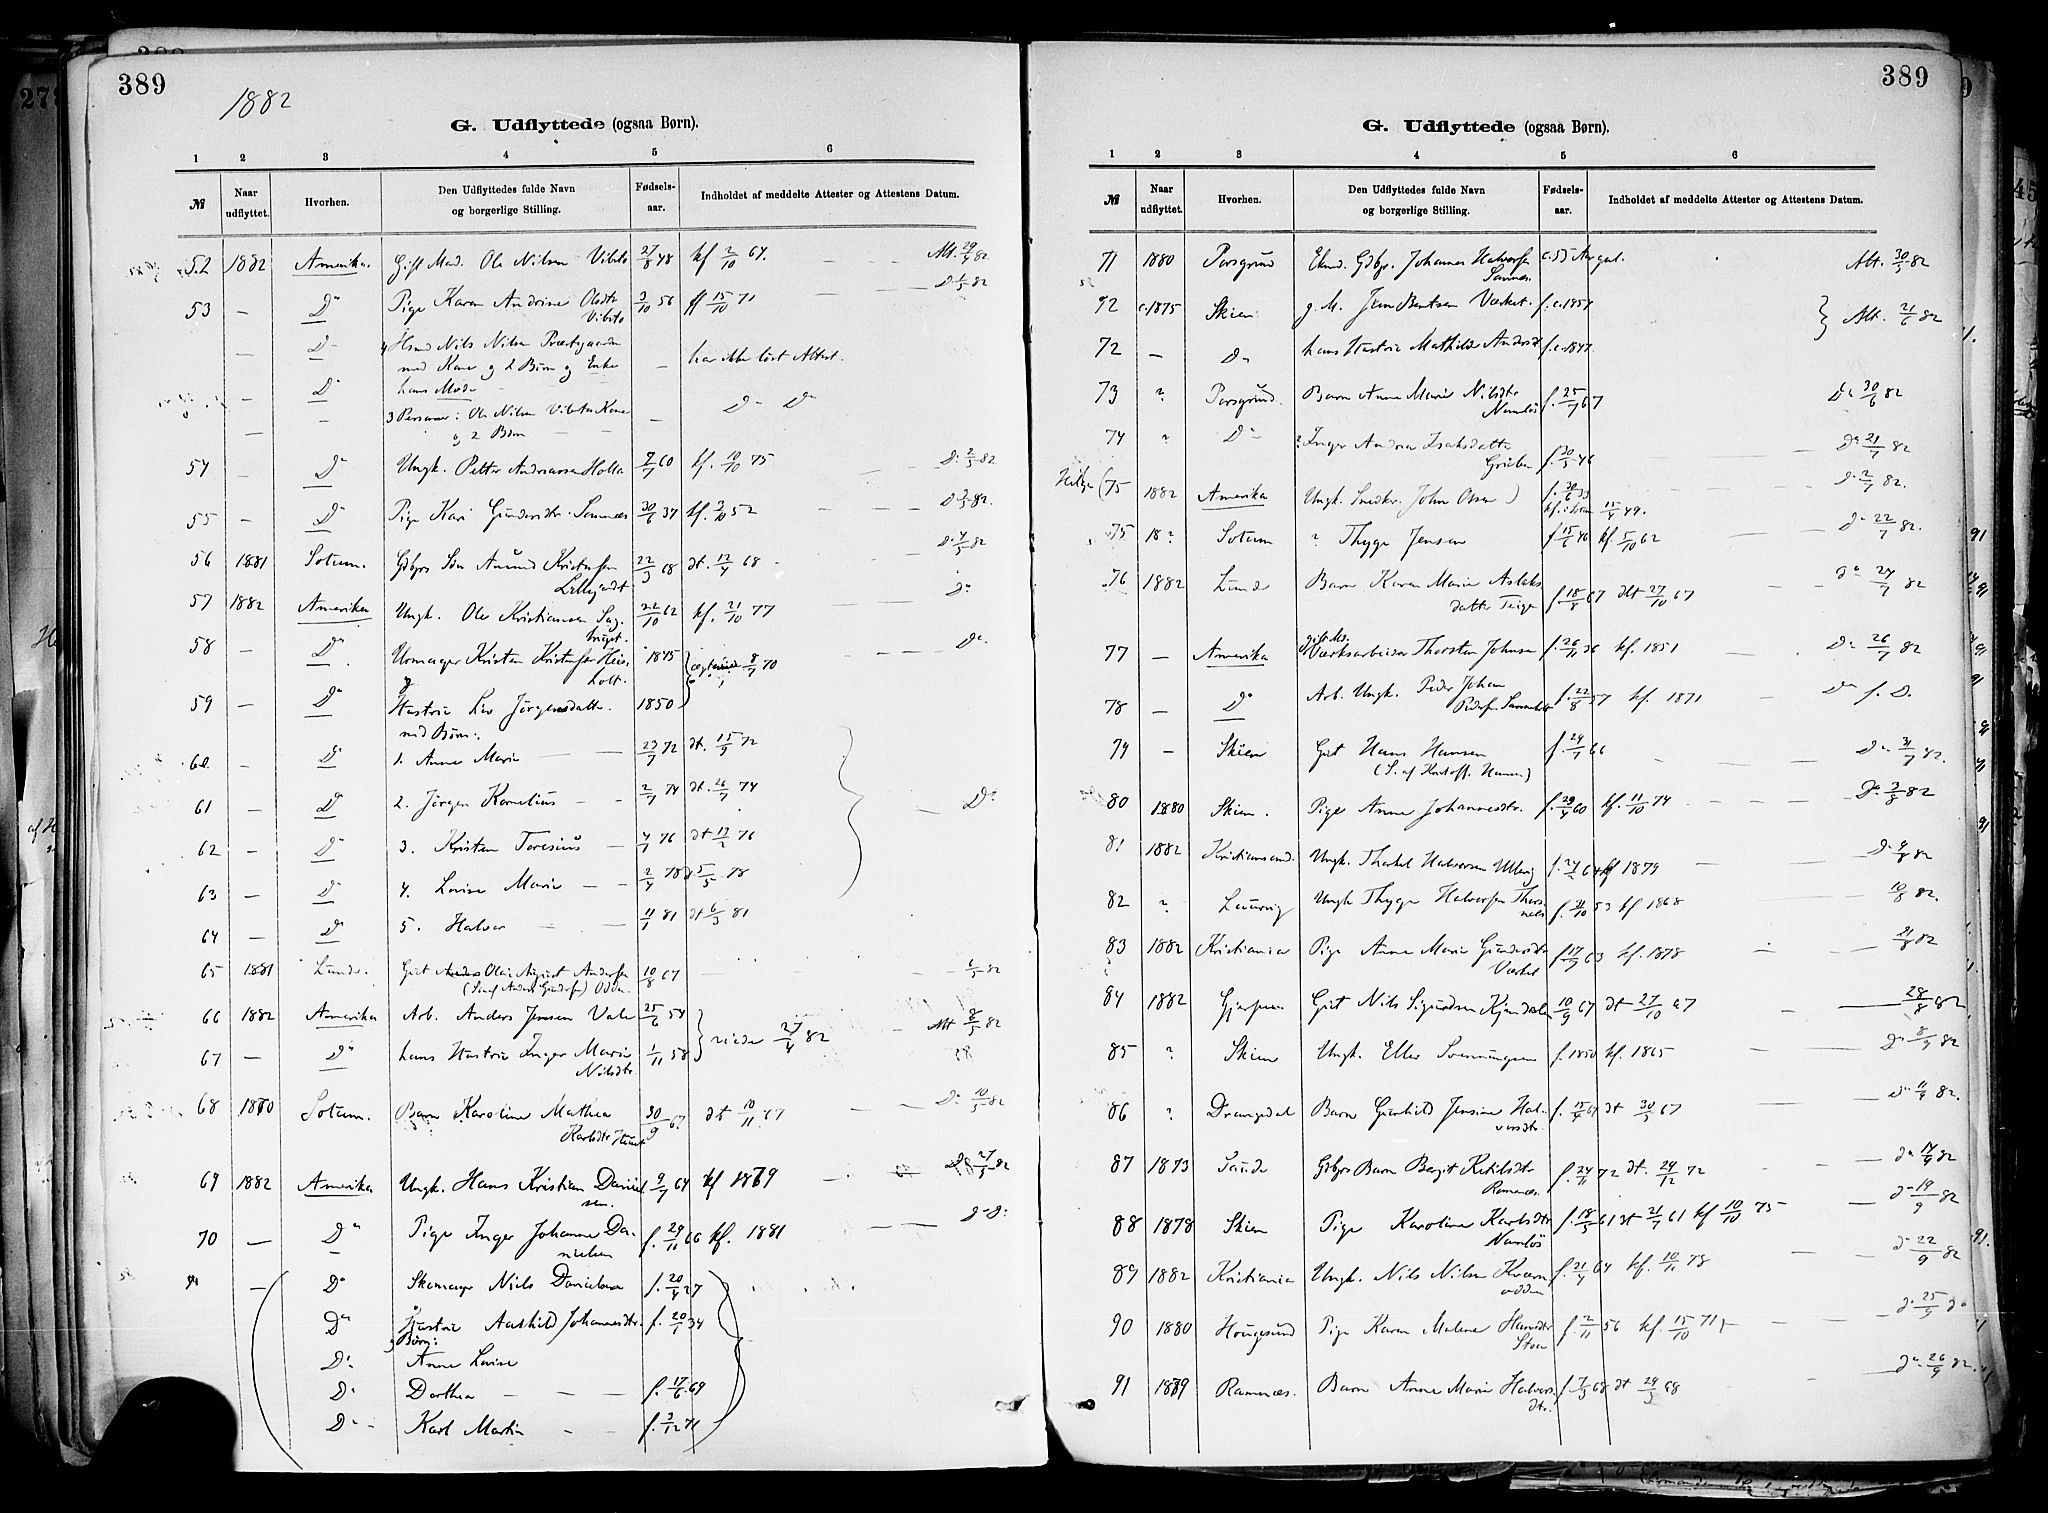 389
1882
G. Udflyttede (ogsaa Børn).
1 2 3 4 5 6
№ Naar udflyttet. Hvorhen. Den Udflyttedes fulde Navn og borgerlige Stilling. Fødselsaar. Indholdet af meddelte Attester og Attestens Datum.
52 1882 Amerika. Gift Mand. Ole Nilsen Vibeto 27/8 48 kf 2/10 64. — Att. 29/4 82
53 — Do Pige Karen Andrine Olsdtr Vibeto 3/10 56 kf 15/10 71 — —
— Do Nils Nilsen Præstgaarden
med Kone og 2 Børn og Enke — har ikke løst Attest.
— Do hans Moder
— — 3 Personer: Ole Nilsen Vibetos Kone — Do Do
— og 2 Børn — —
54 — Do Ungk. Petter Andreassen Holla 7/7 60 kf. 10/10 75 — Do 2/5 82
55 — Do Pige Kari Gundersdtr. Sannæs 30/6 37 kf. 3/10 52 — — Do 3/5 82.
56 1881 Solum. Gdbrs Søn Amund Kristofersen 22/3 68 dt. 12/4 68 — Do 4/5 82
57 1882 Amerika Ungk. Ole Kristiansen 22/10 62 kf. 21/10 77 — — Do
58 — Do Urmager Kristen Kristofer 1845 8/7 70 Do.
og
59 — Do Hustru Liv Jørgensdatter 1850
med Børn:
60. — Do 1. Anne Marie — — 23/7 72 dt. 15/9 72
61 — Do 2. Jørgen Kornelius — — 2/7 74 dt. 26/7 74 — Do
62 — Do 3. Kristen Toresius — 4/1 76 dt 12/2 76
63 — Do 4. Lovise Marie — — 2/4 78 5/5 78
64 — Do 5. Halvor — — 11/1 81 dt 6/3 81
65 1881 Lunde. Gut Olai August Andersen 10/8 67 — 6/5 82
(S. af Anders Gundersen)
66 1882 Amerika Arb. Anders Jensen Vale 25/6 54 viede 27/4 82 — Att 8/5 82
67 — Do hans Hustru Inger Marie Nilsdtr. 1/11 58
68 1870 Solum. Barn Karoline Mathea 30/9 67 dt 10/11 67 — — Do 10/5 82
69 1882 Amerika Ungk. Hans Kristian Danielsen. 9/7 64 kf 1879 — Do 27/5 82
70 — Do Pige Inger Johanne Danielsen f. 29/11 66 kf. 1881 — — Do Do
— Do Skomager Niels Danielsen f. 20/4 27
Do Hustru Aashild Johannesdtr. f. 20/1 34
Børn:
Do Anne Lovise
Do Dorthea — — f. 17/6 69
Do Karl Martin — — f. 3/12 71
389
G. Udflyttede (ogsaa Børn).
1 2 3 4 5 6
№ Naar udflyttet. Hvorhen. Den Udflyttedes fulde Navn og borgerlige Stilling. Fødselsaar. Indholdet af meddelte Attester og Attestens Datum.
71 1880 Porsgrund Johannes Halvorsen Sannæs. c. 55 Aar gml. Att. 30/5 82
92 c. 1875 Skien g. M. Jens Bentsen Værket. f. c. 1851 Att. 21/6 82
72 — Do hans Hustru Mathilde Andersdt f. c. 1847.
73 ? Porsgrund. Barn Anne Marie Nilsdtr Namløs f. 25/7 67 Do 30/6 82
74 ? Do ? Inger Andrea Isaksdatter f. 30/5 46 Do 21/7 82
(75 1882 Amerika Ungk. Snedker. John Olsen ) f. 30/6 33 11/4 49. Do 2/7 82.
75 18? Solum ? Thyge Jensen f. 15/6 46 kf 5/10 62 — Do 22/7 82.
76 1882 Lunde Barn Karen Marie Aslaksdatter Teige f. 18/8 67 dt 27/10 67 — — Do 24/7 82
77 — Amerika gift M. Værksarbeider Thorsten Johnsen f. 26/11 36 kf. 1851 — Do 26/7 82
78 — Do Arb. Ungk. Peder Johan Pedersen f. 22/8 57 kf. 1871 — Do f. D.
79 — Skien Gut Hans Hansen f. 29/1 66 — — Do 31/7 82.
(S. af Kristoff. Hansen)
80 1880 Skien. Pige Anne Johannesdtr. f. 29/4 60 kf. 11/10 74 — — Do 3/8 82
81 1882 Kristiansand. Ungk. Thorkel Halvorsen f. 24/2 64 kf 1879 — Do 9/8 82
82 ? Laurvig Ungk Thyge Halvorsen f. 31/10 53 kf 1868 — 10/8 82.
83 1882 Kristiania Pige Anne Marie Gundersdtr Værket f. 17/9 63 kf. 1878 — 21/8 82
84 1882 Gjerpen Gut Nils Sigurdsen 10/9 67 dt 27/10 67 — 28/8 82
85 ? Skien Ungk. Ellev Svenningsen f. 1850 kf. 1865 — — Do 8/9 82
86 ? Drangedal Barn Gunhild Jensine Halvorsdtr f. 15/4 67 dt 30/5 67 — — Do 11/9 82.
87 1873 Saude Gdbrs Barn Bergit Ketilsdtr Romnæs. f. 24/11 72 dt. 29/12 72 — Do 14/9 82
88 1878 Skien Pige Karoline Karlsdtr Namløs f. 18/5 61 dt 21/7 61 kf 10/10 75 — Do 19/9 82
89 1882 Kristiania Ungk. Nils Nilsen Kværnodden f. 21/4 64 kf. 10/11 78 — Do 22/9 82
90 1880 Hougesund Pige Karen Malene Hansdtr f. 2/11 56 kf. 15/10 71 — Do 25/9 do
91 1879 Romnæs. Barn Anne Marie Halvorsdtr. f. 7/3 68 dt 29/3 68 — Do 26/9 82.